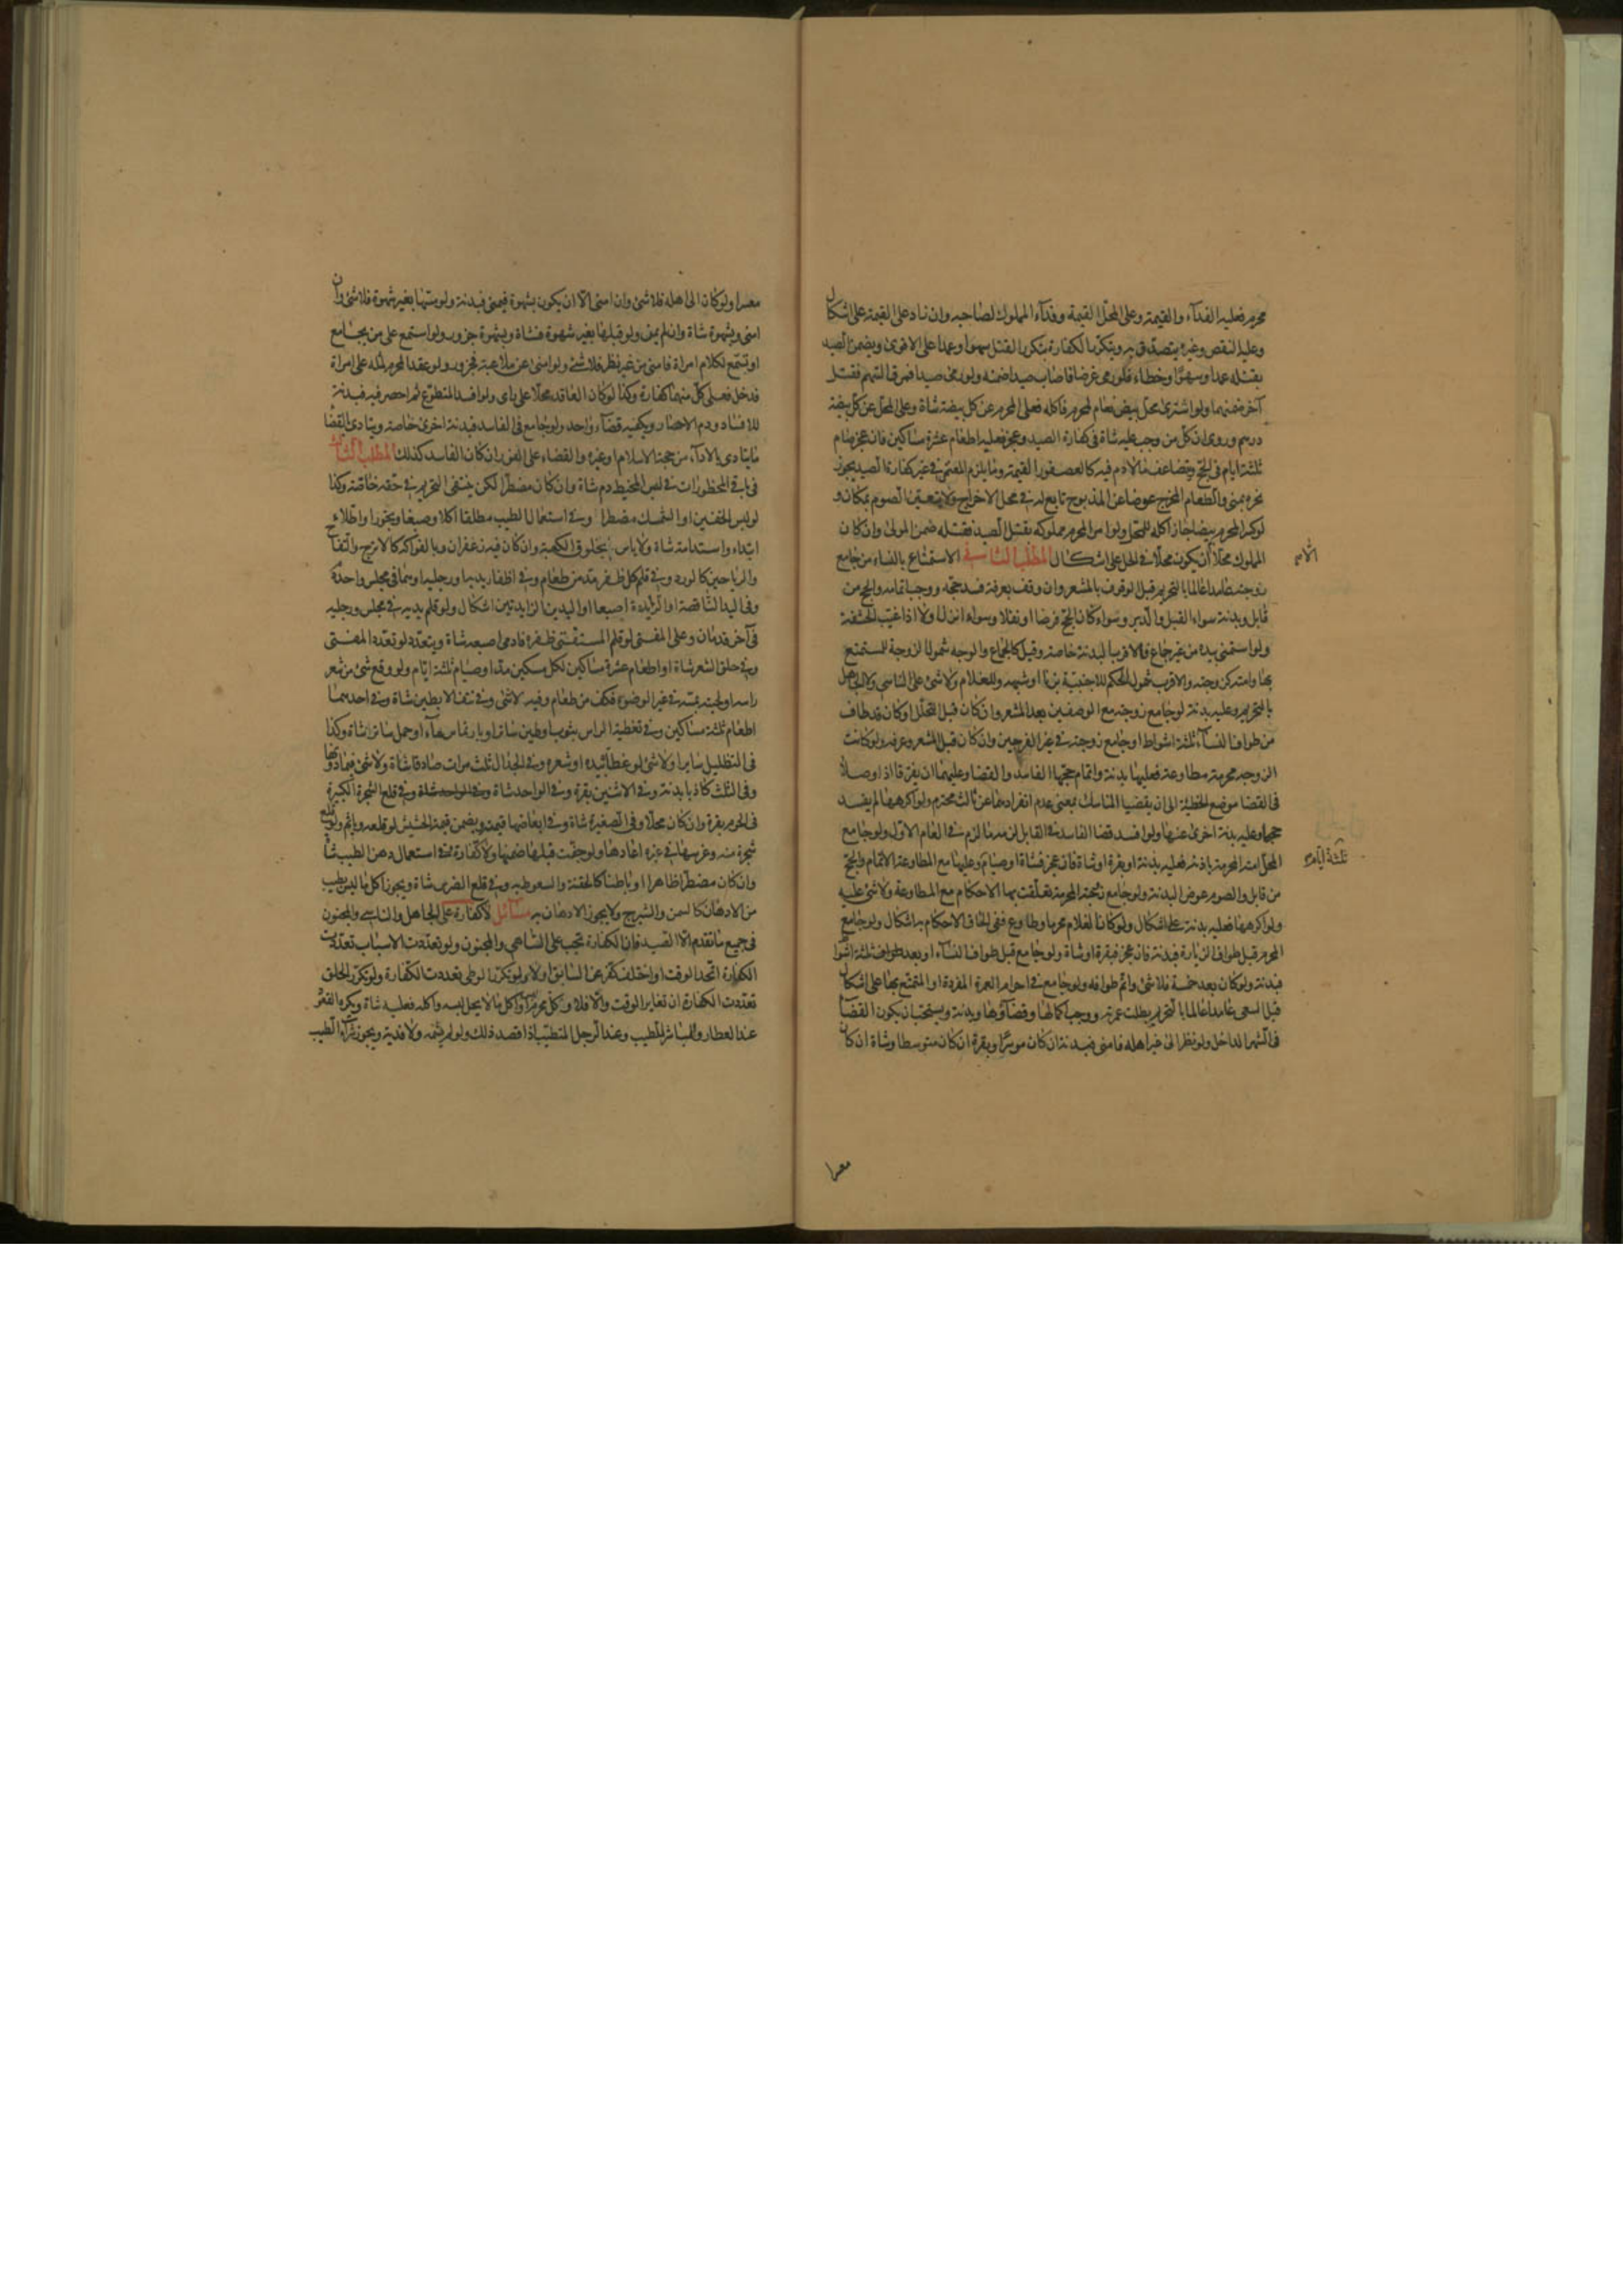 محرم فعليه الفدآء والقيمة وعلى المحلّ القيمة وفدآء المملوك لصاحبه وان زاد على القيمة على اشكال
وعليه النقص وغيره يتصدّق به ويتكرّر الكفارة بتكرر القتل سهوا وعمدا على الاقوى ويضمن الصيد
بقتله عمدا وسهوًا وخطاء فلو رمى غرضا فاصاب صيدا ضمنه ولو رمى صيدا فمرق السهم فقتل
آخر ضمنهما ولو اشترى محلّ بيض نعام لمحرم فاكله فعلى المحرم عن كل بيضة شاة وعلى المحلّ عن كل بيضة
درهم وروى ان كل من وجب عليه شاة في كفارة الصيد وعجز فعليه اطعام عشرة مساكين فان عجز صام
ثلثة ايام في الحج وتضاعف ما لا دم فيه كالعصفور القيمة وما يلزم المعتمر في غير كفارة الصيد يجوز
نحره بمنى والطعام المخرج عوضا عن المذبوح تابع له في محل الاخراج ولا يتعين الصوم بمكان و
لو كسر المحرم بيضا جاز اكله للمحل ولو امر المحرم مملوكه بقتل الصيد فقتله ضمن المولى وان كان
المملوك محلّا الّا ان يكون محلّا في الحل على اشكال المطلب الثاني في الاستمتاع بالنساء من جامع
زوجته عامدا عالما بالتحريم قبل الوقوف بالمشعر وان وقف بعرفة فسد حجّه ووجب اتمامه والحج من
قابل وبدنة سواء القبل والدبر وسواء كان الحج فرضا او نفلا وسواء انزل او لا اذا غيّب الحشفة
ولو استمنى بيده من غير جماع فالاقرب البدنة خاصة وقيل كالجماع والوجه شمول الزوجة للمستمتع
بها وامته كزوجته والاقرب شمول الحكم للاجنبيّة بزنا او شبهه وللغلام ولا شئ على الناسي ولا الجاهل
بالتحريم وعليه بدنة لو جامع زوجته مع الوصفين بعد المشعر وان كان قبل التحلل او كان قد طاف
من طواف النسآء ثلثة اشواط او جامع زوجته في غير الفرجين وان كان قبل المشعر وعرفه ولو كانت
الزوجة محرمة مطاوعة فعليها بدنة واتمام حجّها الفاسد والقضا وعليهما ان يفترقا اذا وصلا
في القضا موضع الخطيئة الى ان يقضيا المناسك بمعنى عدم انفرادهما عن ثالث محترم ولو اكرهها لم يفسد
حجها وعليه بدنة اخرى عنها ولو افسد قضا الفاسد في القابل لزمه ما لزم في العام الاول ولو جامع
المحل امته المحرمة باذنه فعليه بدنة او بقرة او شاة فان عجز فشاة او صيام وعليها مع المطاوعة الاتمام والحج
من قابل والصوم عوض البدنة ولو جامع زوجته المحرمة تعلّقت بها الاحكام مع المطاوعة ولا شئ عليه
ولو اكرهها فعليه بدنة على اشكال ولو كان الغلام محرما وطاوع ففي الحاق الاحكام به اشكال ولو جامع
المحرم قبل طواف الزيارة فبدنة فان عجز فبقرة او شاة ولو جامع قبل طواف النسآء او بعد طواف ثلثة اشواط
فبدنة ولو كان بعد خمسة فلا شئ واتم طوافه ولو جامع في احرام العمرة المفردة او المتمتع بها على اشكال
قبل السعى عامدا عالما بالتحريم بطلت عمرته ووجب اكمالها وقضاؤها وبدنة ويستحب ان يكون القضآء
في الشهر الداخل ولو نظر الى غير اهله فامنى فبدنة ان كان موسرًا وبقرة ان كان متوسطا وشاة ان كان
الّا
ثلثة ايّام
معسرا
معسرا ولو كان الى اهله فلا شئ وان امنى الّا ان يكون بشهوة فيمنى فبدنة ولو مسّها بغير شهوة فلا شئ وان
امنى وبشهوة شاة وان لم يمن ولو قبلها بغير شهوة فشاة وبشهوة جزور ولو استمع على من يجامع
او تسمع لكلام امراة فامنى من غير نظر فلا شئ ولو امنى عن ملاعبة فجزور ولو عقد المحرم لمثله على امراة
فدخل فعلى كلّ منهما كفارة وكذا لو كان العاقد محلّا على راى ولو افسد المتطوّع ثم احصر فيه فبدنة
للافساد ودم الاحصار ويكفيه قضآء واحد ولو جامع في الفاسد فبدنة اخرى خاصة ويتادى بالقضا
ما يتادى بالادآء من حجة الاسلام او غيره والقضاء على الفور ان كان الفاسد كذلك المطلب الثالث
في باقي المحظورات في لبس المخيط دم شاة وان كان مضطرّا لكن ينتفى التحريم في حقه خاصّة وكذا
لو لبس الخفين او الشمشك مضطرا وفي استعمال الطيب مطلقا اكلا وصبغا وبخورا واطلاء
ابتداء واستدامة شاة ولا باس بخلوق الكعبة وان كان فيه زعفران وبالفواكه كالاترج والتفاح
والرياحين كالورد وفي قلم كل ظفر مد من طعام وفي اظفار يديه او رجليه او هما في مجلس واحد دم
وفي اليد الناقصة او الزايدة اصبعا او اليدين الزايدتين اشكال ولو قلم يديه في مجلس ورجليه
في آخر فدمان وعلى المفتى لو قلم المستفتى ظفره فادمى اصبعه شاة ويتعدّد لو تعدّد المفتى
وفي حلق الشعر شاة او اطعام عشرة مساكين لكل مسكين مدّ او صيام ثلثة ايّام ولو وقع شئ من شعر
راسه او لحيته بمسّه في غير الوضوء فكف من طعام وفيه لا شئ وفي نتف الابطين شاة وفي احدهما
اطعام ثلثة مساكين وفي تغطية الراس بثوب او طين ساتر او بارتماس مآء او حمل ساتر شاة وكذا
في التظليل سايرا ولا شئ لو غطّا بيده او شعره وفي الجدال ثلث مرات صادقا شاة ولا شئ فيما دونها
وفي الثلث كاذبا بدنة وفي الاثنين بقرة وفي الواحد شاة وفي الواحد شاة وفي قلع الشجرة الكبيرة
في الحرم بقرة وان كان محلّا وفي الصغيرة شاة وفي ابعاضها قيمته ويضمن قيمة الحشيش لو قلعه وياثم ولو قلع
شجرة منه وغرسها في غيره اعادها ولو جفت قبلها ضمنها ولا كفارة وفي استعمال دهن الطيب شاة
وان كان مضطرّا ظاهرا او باطنا كالحقنة والسعوط به وفي قلع الضرس شاة ويجوز اكل ما ليس بطيب
من الادهان كالسمن والشيرج ولا يجوز الادهان به مسائل لا كفارة على الجاهل والناسي والمجنون
في جميع ما تقدم الّا الصيد فان الكفارة تجب على الساهى والمجنون ولو تعدّدت الاسباب تعدّدت
الكفارة اتّحد الوقت او اختلف كفّر عن السابق او لا ولو تكرّر الوطى تعددت الكفّارة ولو تكرّر الحلق
تعدّدت الكفارة ان تغاير الوقت والّا فلا وكل محرم لبس او اكل ما لا يحل لبسه واكله فعليه شاة ويكره القعود
عند العطار والمباشر للطيب وعند الرجل المتطيب اذا قصد ذلك ولو لم يشمه ولا فدية ويجوز شرآء الطيب